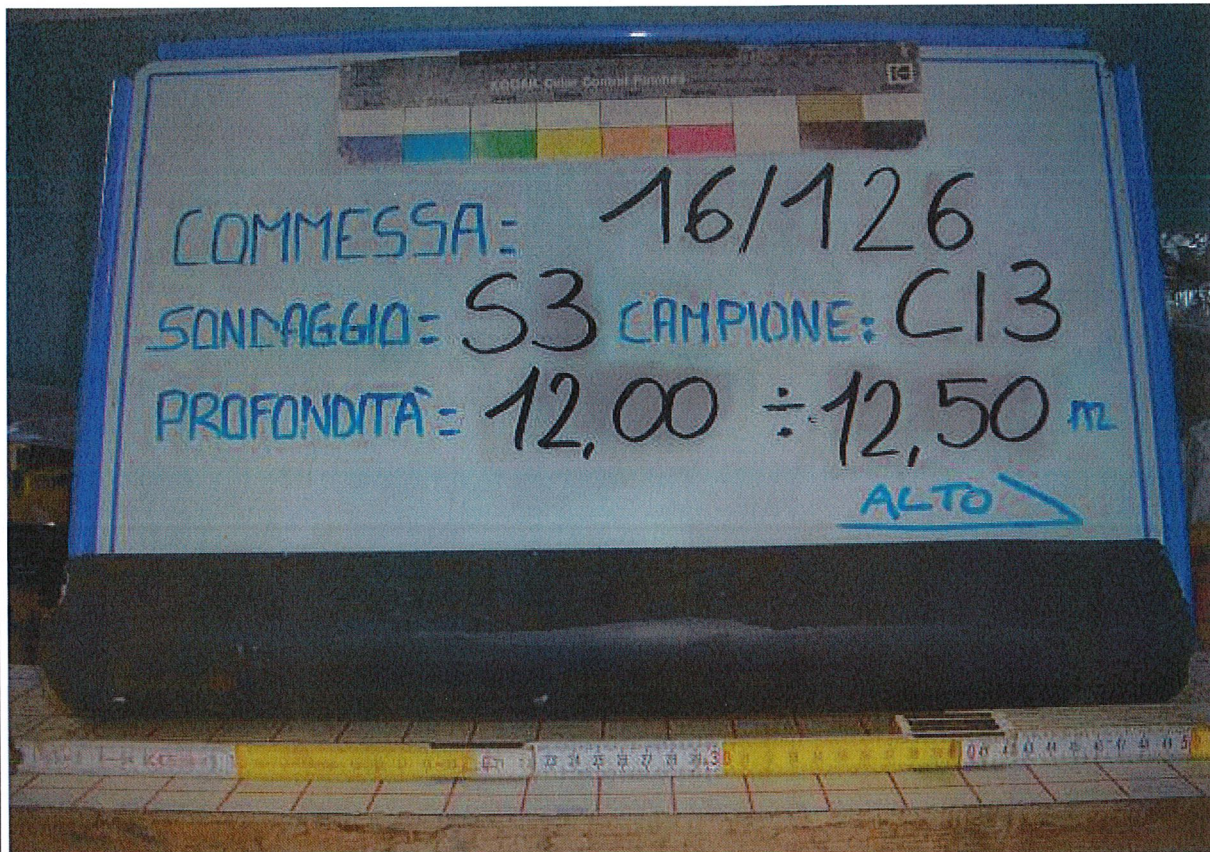 KODAK Color Control Patches
COMMESSA: 16/126
SONDAGGIO: S3 CAMPIONE: CI3
PROFONDITÀ: 12,00 ÷ 12,50 m
ALTO